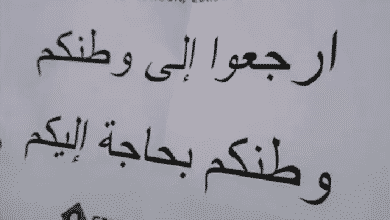 ارجعوا إلى وطنكم
وطنكم بحاجة إليكم